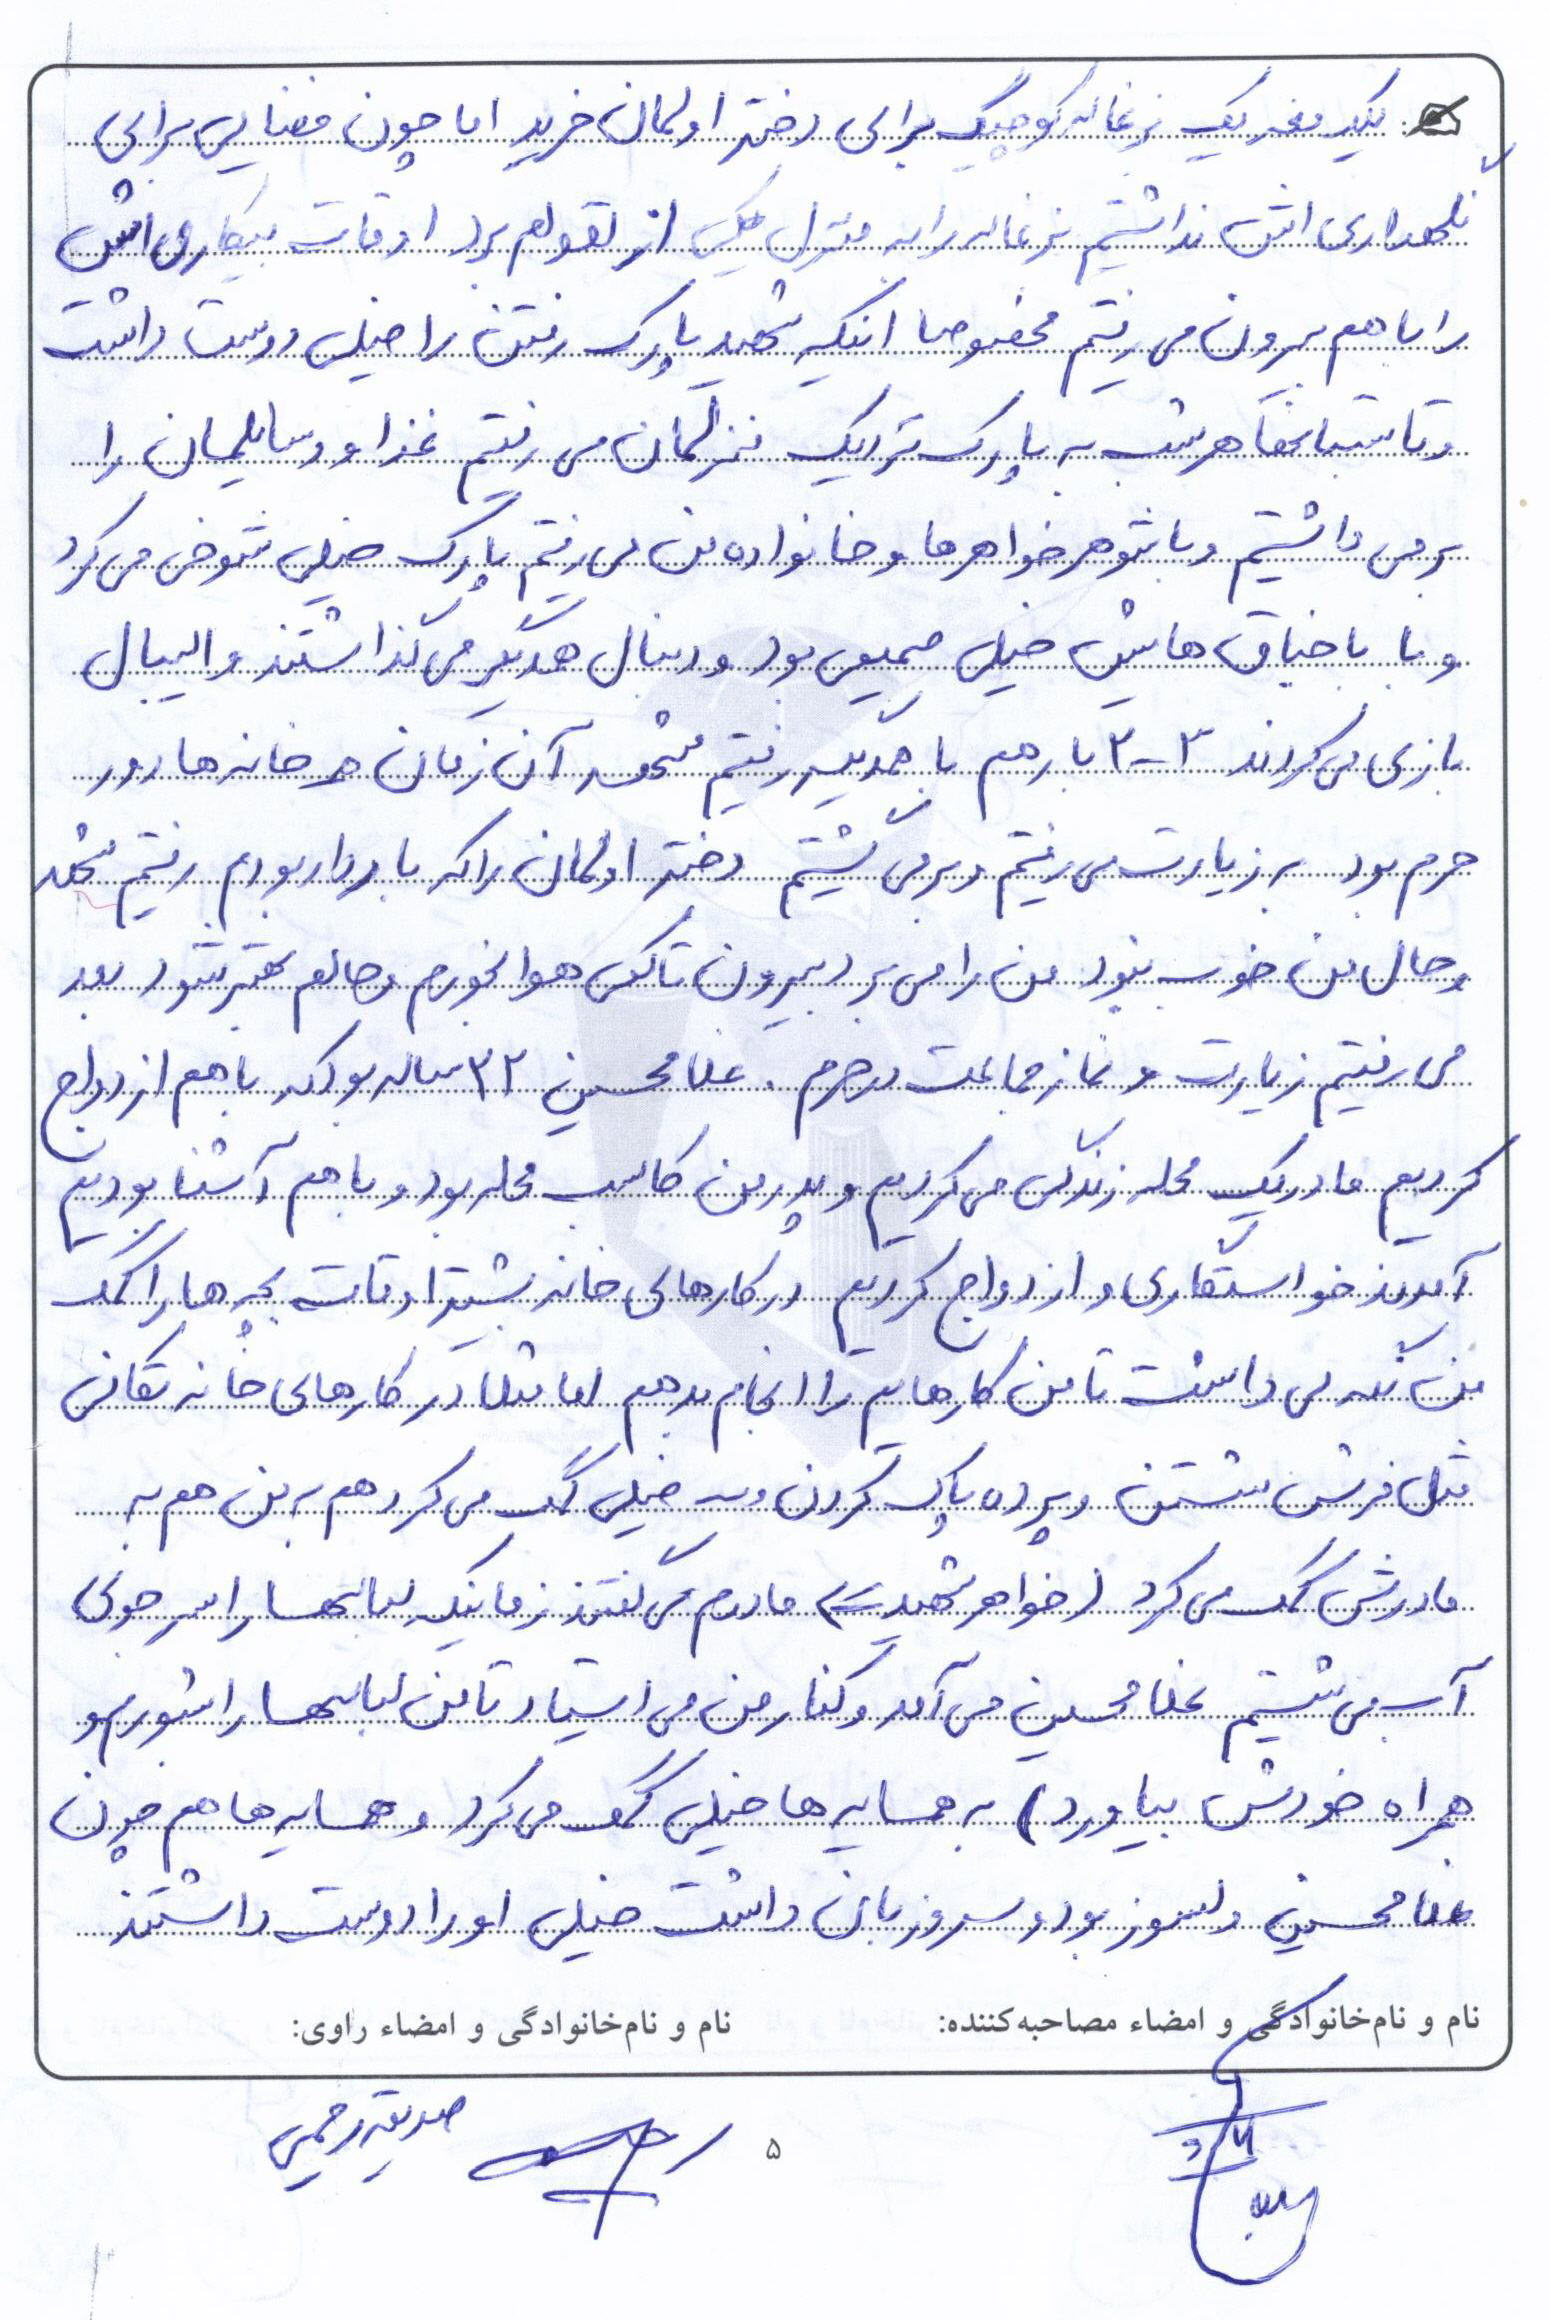 یکبار یک بزغاله کوچیک برای دختر اولمان خرید اما چون فضایی برای
نگهداری اش نداشتیم بزغاله را به منزل یکی از اقوام برد اوقات بیکاری اش
را با هم بیرون می رفتیم مخصوصا اینکه شهید پارک رفتن را خیلی دوست داشت
و تابستانها هر شب به پارک نزدیک منزلمان می رفتیم غذا و وسایلمان را
بر می داشتیم و با شوهر خواهرها و خانواده من می رفتیم پارک خیلی شوخی می کرد
و با باجناق هایش خیلی صمیمی بود و دنبال همدیگر می گذاشتند والیبال
بازی می کردند ۳-۲ بار هم با همدیگر رفتیم مشهد آن زمان خانه ها دور
حرم بود به زیارت می رفتیم و بر می گشتیم دختر اولمان را که باردار بودم رفتیم مشهد
و حال من خوب نبود من را می برد بیرون تا کمی هوا بخورم و حالم بهتر شود بعد
می رفتیم زیارت و نماز جماعت در حرم . غلامحسین ۲۲ ساله بود که با هم ازدواج
کردیم ما در یک محله زندگی می کردیم و پدر من کاسب محله بود و با هم آشنا بودیم
آمدند خواستگاری و ازدواج کردیم در کارهای خانه بیشتر اوقات بچه ها را کمک
من نگه می داشت تا من کارهایم را انجام بدهم اما مثلا در کارهای خانه تکانی
مثل فرش شستن و پرده پاک کردن و خیلی کمک می کرد هم به من هم به
مادرش کمک می کرد (خواهر شهید ⇐ مادرم می گفتند زمانیکه لباسها را سر جوی
آب می شستیم غلامحسین می آمد و کنار من می ایستاد تا من لباسها را بشورم و
همراه خودش بیاورد) به همسایه ها خیلی کمک می کرد و همسایه ها هم چون
غلامحسین دلسوز بود و سر و زبان داشت خیلی او را دوست داشتند
نام و نام‌خانوادگی و امضاء مصاحبه‌کننده: نام و نام‌خانوادگی و امضاء راوی:
صدیقه رحیمی
۵